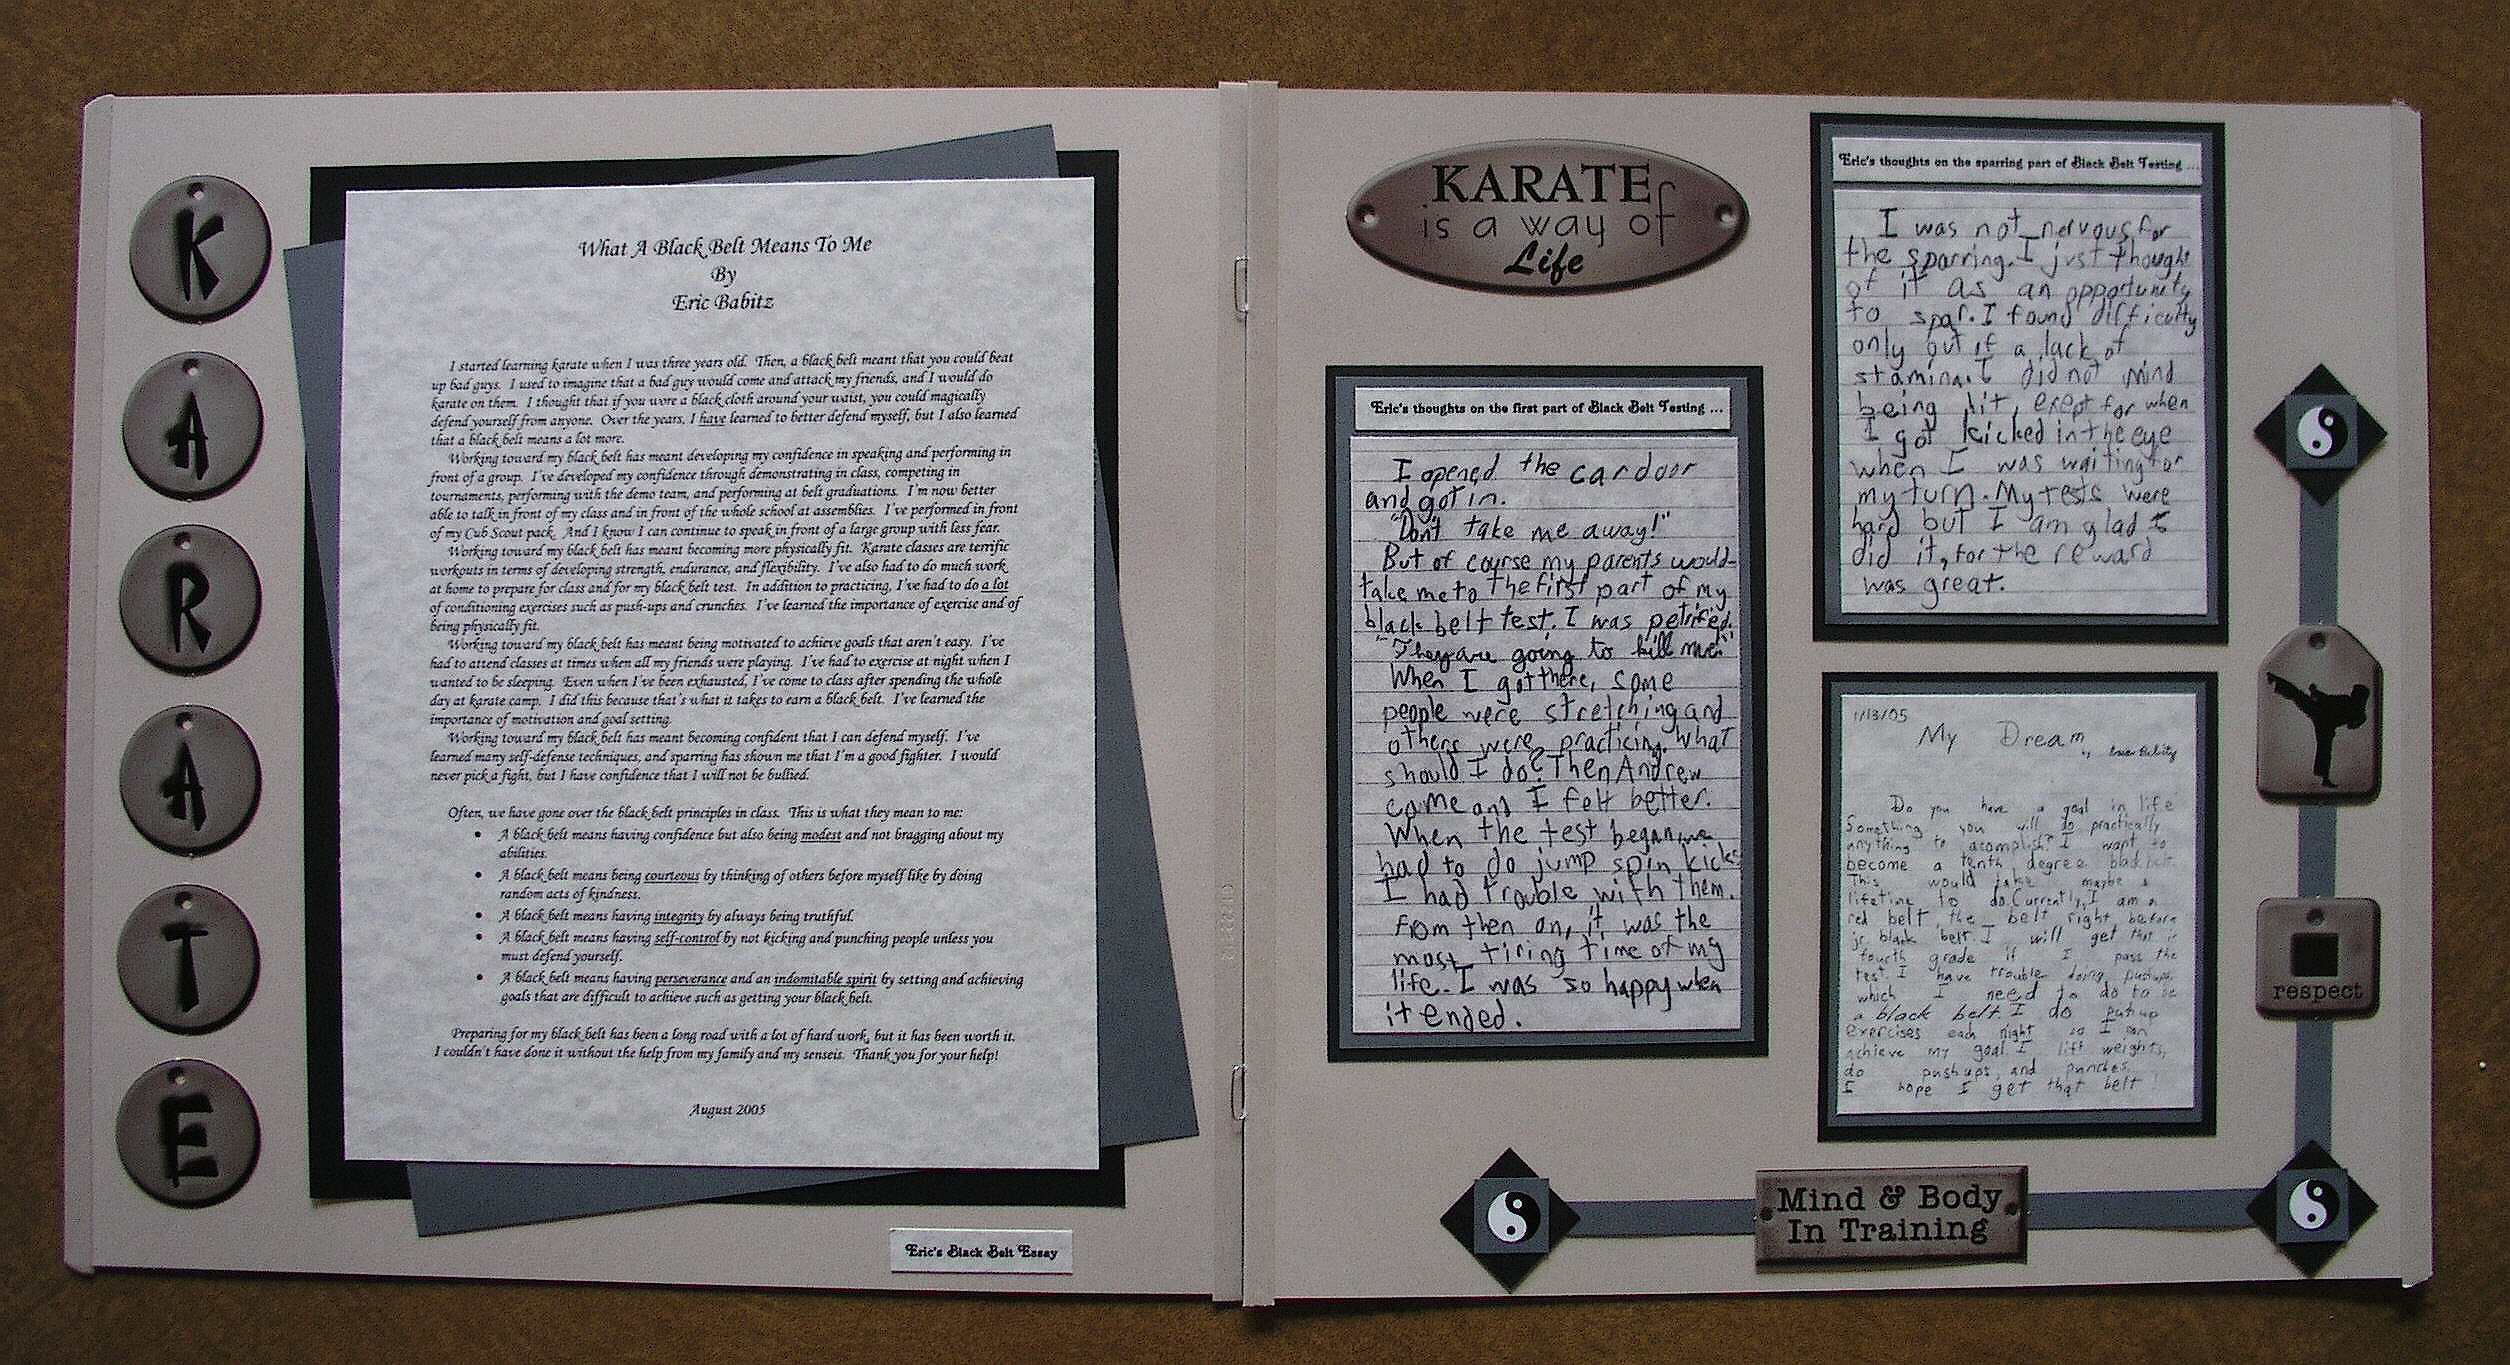 K
A
R
A
T
E
What A Black Belt Means To Me
By
Eric Babitz
I started learning karate when I was three years old. Then, a black belt meant that you could beat
up bad guys. I used to imagine that a bad guy would come and attack my friends, and I would do
karate on them. I thought that if you wore a black cloth around your waist, you could magically
defend yourself from anyone. Over the years, I have learned to better defend myself, but I also learned
that a black belt means a lot more.
Working toward my black belt has meant developing my confidence in speaking and performing in
front of a group. I've developed my confidence through demonstrating in class, competing in
tournaments, performing with the demo team, and performing at belt graduations. I'm now better
able to talk in front of my class and in front of the whole school at assemblies. I've performed in front
of my Cub Scout pack. And I know I can continue to speak in front of a large group with less fear.
Working toward my black belt has meant becoming more physically fit. Karate classes are terrific
workouts in terms of developing strength, endurance, and flexibility. I've also had to do much work
at home to prepare for class and for my black belt test. In addition to practicing, I've had to do a lot
of conditioning exercises such as push-ups and crunches. I've learned the importance of exercise and of
being physically fit.
Working toward my black belt has meant being motivated to achieve goals that aren't easy. I've
had to attend classes at times when all my friends were playing. I've had to exercise at night when I
wanted to be sleeping. Even when I've been exhausted, I've come to class after spending the whole
day at karate camp. I did this because that's what it takes to earn a black belt. I've learned the
importance of motivation and goal setting.
Working toward my black belt has meant becoming confident that I can defend myself. I've
learned many self-defense techniques, and sparring has shown me that I'm a good fighter. I would
never pick a fight, but I have confidence that I will not be bullied.
Often, we have gone over the black belt principles in class. This is what they mean to me:
• A black belt means having confidence but also being modest and not bragging about my
abilities.
• A black belt means being courteous by thinking of others before myself like by doing
random acts of kindness.
• A black belt means having integrity by always being truthful.
• A black belt means having self-control by not kicking and punching people unless you
must defend yourself.
• A black belt means having perseverance and an indomitable spirit by setting and achieving
goals that are difficult to achieve such as getting your black belt.
Preparing for my black belt has been a long road with a lot of hard work, but it has been worth it.
I couldn't have done it without the help from my family and my senseis. Thank you for your help!
August 2005
Eric's Black Belt Essay
KARATE
is a way of
Life
Eric's thoughts on the first part of Black Belt Testing ...
I opened the car door
and got in.
"Don't take me away!"
But of course my parents would
take me to the first part of my
black belt test. I was petrified.
"They are going to kill me!"
When I got there, some
people were stretching and
others were practicing. What
should I do? Then Andrew
came and I felt better.
When the test began, we
had to do jump spin kicks
I had trouble with them.
From then on, it was the
most tiring time of my
life. I was so happy when
it ended.
Eric's thoughts on the sparring part of Black Belt Testing ...
I was not nervous for
the sparring. I just thought
of it as an opportunity
to spar. I found difficulty
only out of a lack of
stamina. I did not mind
being hit, exept for when
I got kicked in the eye
when I was waiting for
my turn. My tests were
hard but I am glad I
did it, for the reward
was great.
1/13/05
My Dream
by
Do you have a goal in life
Something you will do practically
anything to acomplish? I want to
become a tenth degree black belt.
This would take maybe a
lifetime to do. Currently, I am a
red belt, the belt right before
jr. black belt. I will get that in
fourth grade if I pass the
test. I have trouble doing pushups,
which I need to do to be
a black belt. I do pushup
exercises each night so I can
achieve my goal. I lift weights,
do pushups, and punches.
I hope I get that belt
respect
Mind & Body
In Training